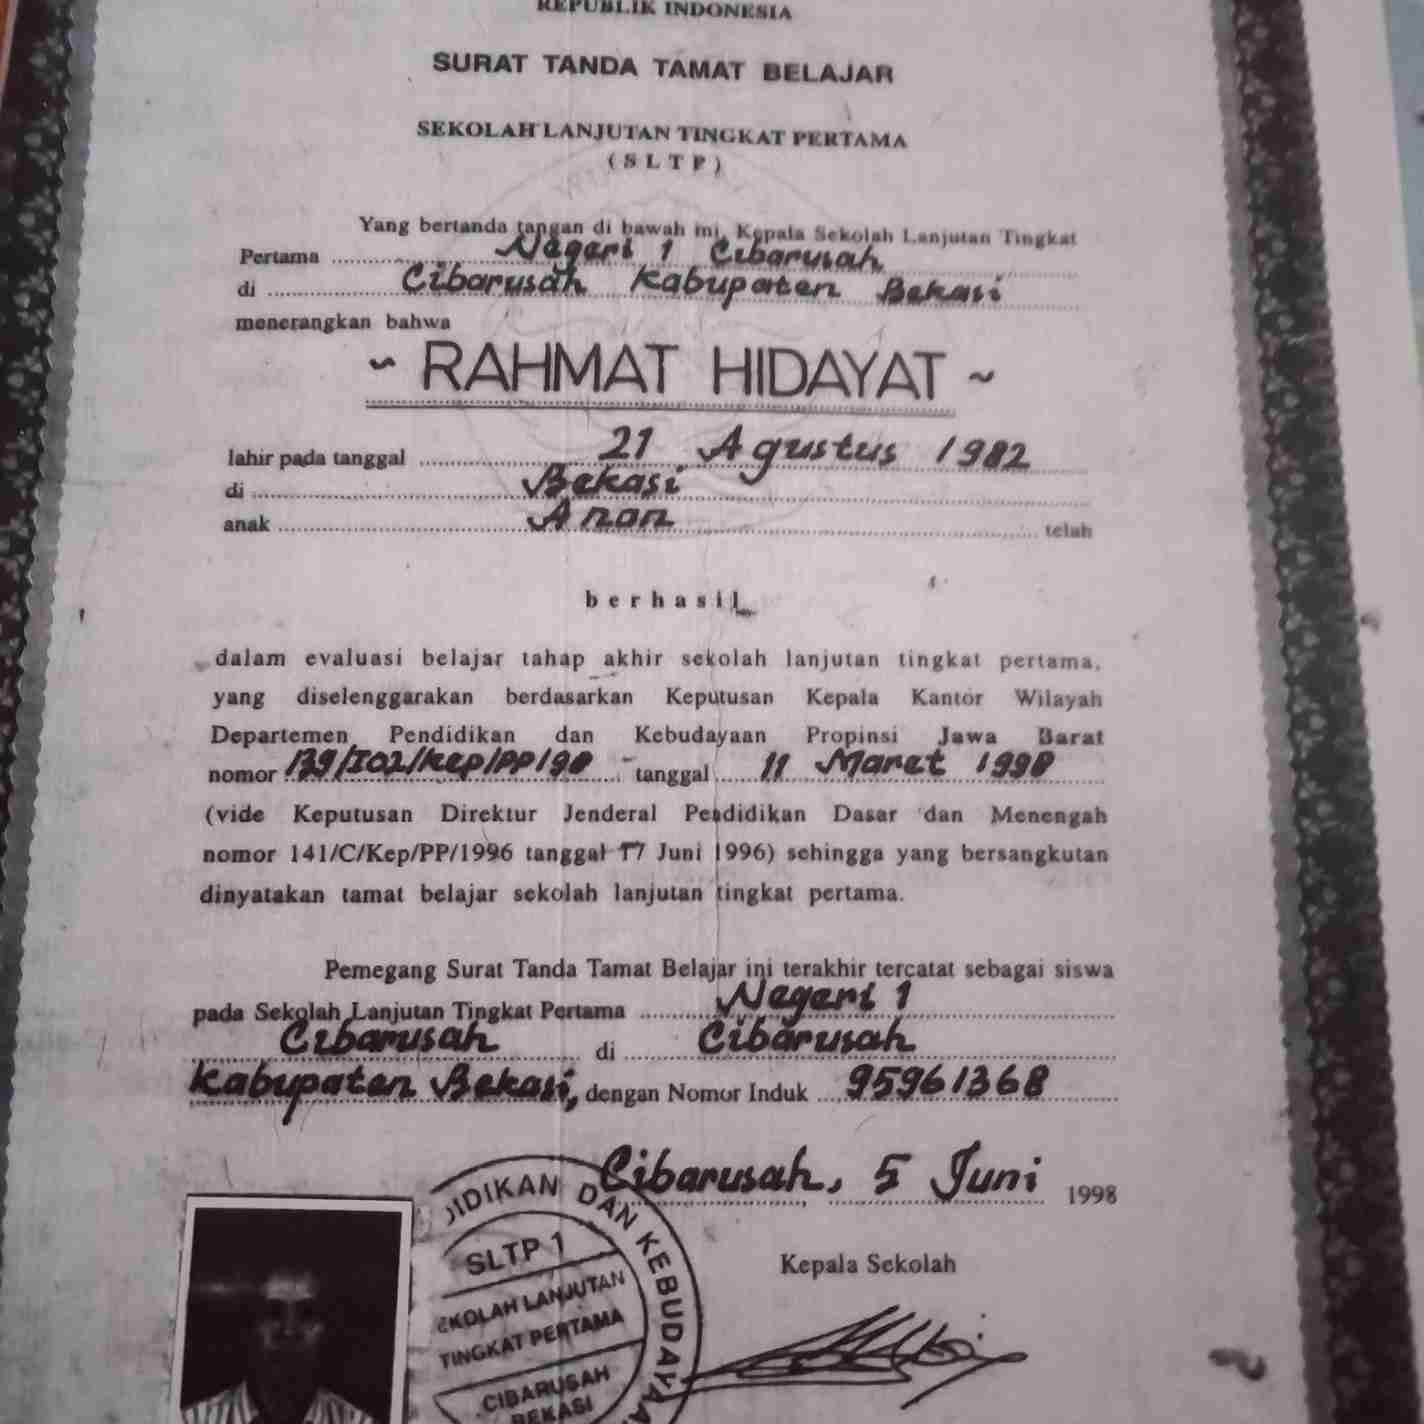 REPUBLIK INDONESIA
SURAT TANDA TAMAT BELAJAR
SEKOLAH LANJUTAN TINGKAT PERTAMA
(SLTP)
Yang bertanda tangan di bawah ini, Kepala Sekolah Lanjutan Tingkat
Pertama Negeri 1 Cibarusah
di Cibarusah Kabupaten Bekasi
menerangkan bahwa
~ RAHMAT HIDAYAT ~
lahir pada tanggal 21 Agustus 1982
di Bekasi
anak Anon telah
berhasil
dalam evaluasi belajar tahap akhir sekolah lanjutan tingkat pertama,
yang diselenggarakan berdasarkan Keputusan Kepala Kantor Wilayah
Departemen Pendidikan dan Kebudayaan Propinsi Jawa Barat
nomor 139/I02/Kep/PP/98 tanggal 11 Maret 1998
(vide Keputusan Direktur Jenderal Pendidikan Dasar dan Menengah
nomor 141/C/Kep/PP/1996 tanggal 17 Juni 1996) sehingga yang bersangkutan
dinyatakan tamat belajar sekolah lanjutan tingkat pertama.
Pemegang Surat Tanda Tamat Belajar ini terakhir tercatat sebagai siswa
pada Sekolah Lanjutan Tingkat Pertama Negeri 1
Cibarusah di Cibarusah
Kabupaten Bekasi, dengan Nomor Induk 95961368
Cibarusah, 5 Juni 1998
Kepala Sekolah
DIDIKAN DAN KEBUDAYAA
SLTP 1
EKOLAH LANJUTAN
TINGKAT PERTAMA
CIBARUSAH
BEKASI